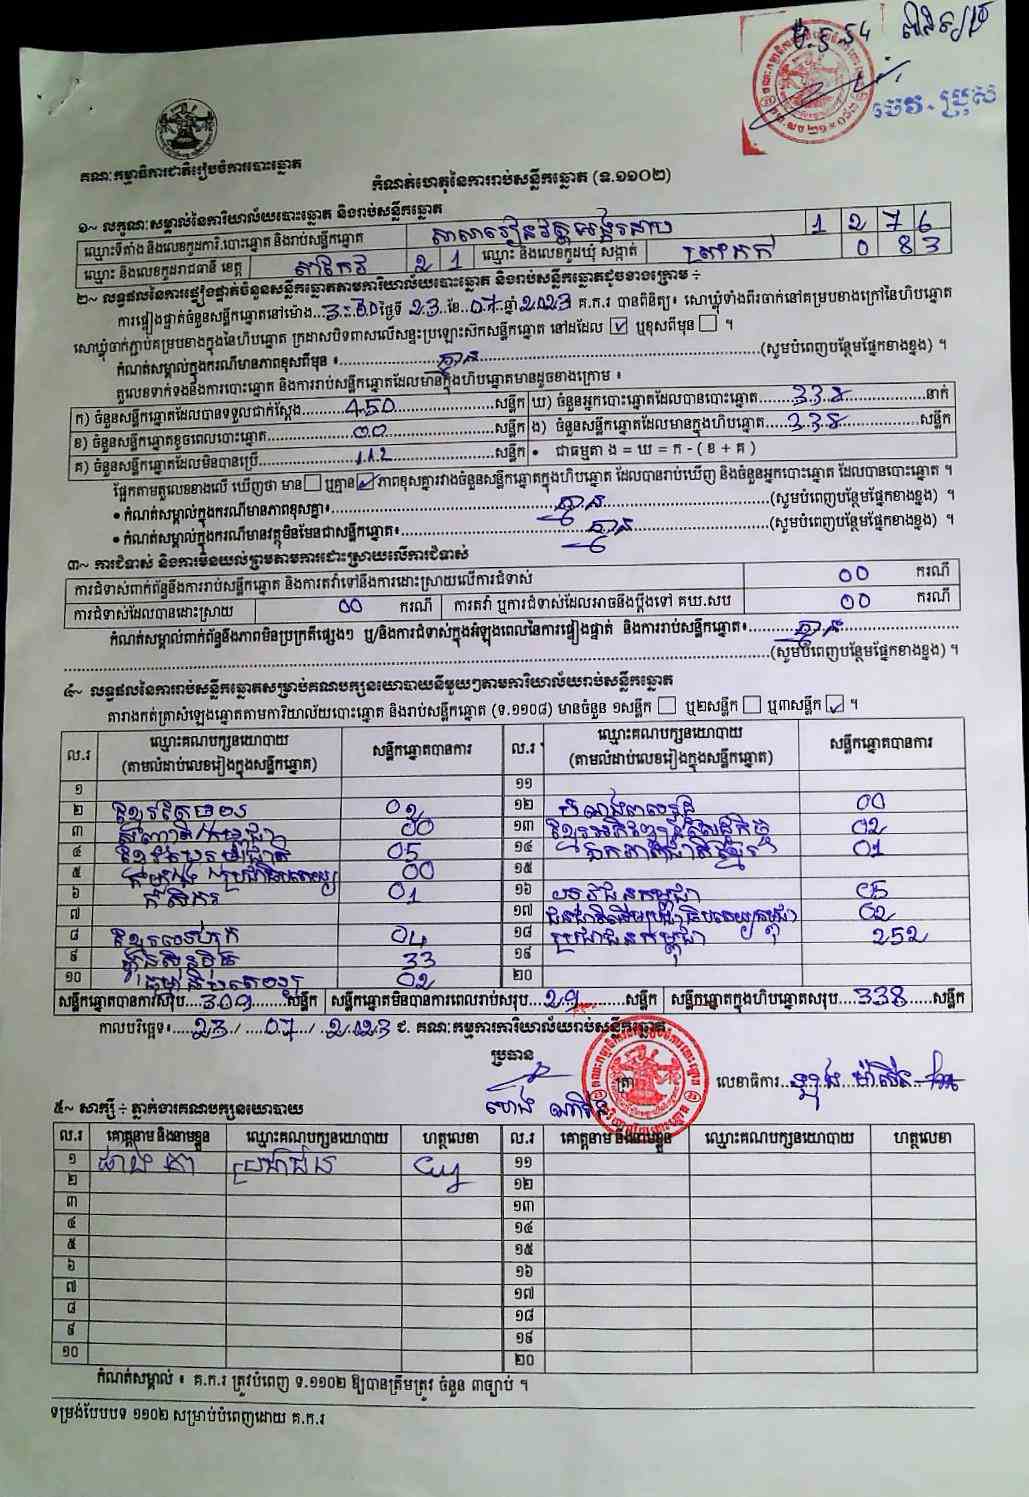 គណៈកម្មាធិការជាតិរៀបចំការបោះឆ្នោត
កំណត់ហេតុនៃការរាប់សន្លឹកឆ្នោត (ទ.១១០២)
១~ លក្ខណៈសម្គាល់នៃការិយាល័យបោះឆ្នោត និងរាប់សន្លឹកឆ្នោត
ឈ្មោះទីតាំង និងលេខកូដការិ.បោះឆ្នោត និងរាប់សន្លឹកឆ្នោត សាលារៀនវត្តអង្គរនាប 1 2 7 6
ឈ្មោះ និងលេខកូដរាជធានី ខេត្ត តាកែវ 2 1 ឈ្មោះ និងលេខកូដឃុំ សង្កាត់ 0 8 3
២~ លទ្ធផលនៃការផ្ទៀងផ្ទាត់ចំនួនសន្លឹកឆ្នោតតាមការិយាល័យបោះឆ្នោត និងរាប់សន្លឹកឆ្នោតដូចខាងក្រោម ÷
ការផ្ទៀងផ្ទាត់ចំនួនសន្លឹកឆ្នោតនៅម៉ោង 3:30 ថ្ងៃទី 23 ខែ 07 ឆ្នាំ 2023 គ.ក.រ បានពិនិត្យ៖ សោឃ្លុំទាំងពីរចាក់នៅគម្របខាងក្រៅនៃហិបឆ្នោត
សោឃ្លុំចាក់ភ្ជាប់គម្របខាងក្នុងនៃហិបឆ្នោត ក្រដាសបិទពាសលើសន្ទះប្រឡោះសឹកសន្លឹកឆ្នោត នៅដដែល ☑ ឬខុសពីមុន ☐ ។
កំណត់សម្គាល់ក្នុងករណីមានភាពខុសពីមុន ៖ គ្មាន (សូមបំពេញបន្ថែមផ្នែកខាងខ្នង) ។
តួលេខទាក់ទងនឹងការបោះឆ្នោត និងការរាប់សន្លឹកឆ្នោតដែលមានក្នុងហិបឆ្នោតមានដូចខាងក្រោម ៖
ក) ចំនួនសន្លឹកឆ្នោតដែលបានទទួលជាក់ស្តែង 450 សន្លឹក ឃ) ចំនួនអ្នកបោះឆ្នោតដែលបានបោះឆ្នោត 338 នាក់
ខ) ចំនួនសន្លឹកឆ្នោតខូចពេលបោះឆ្នោត 00 សន្លឹក ង) ចំនួនសន្លឹកឆ្នោតដែលមានក្នុងហិបឆ្នោត 338 សន្លឹក
គ) ចំនួនសន្លឹកឆ្នោតដែលមិនបានប្រើ 112 សន្លឹក • ជាធម្មតា ង = ឃ = ក - ( ខ + គ )
ផ្អែកតាមតួលេខខាងលើ ឃើញថា មាន ☐ ឬគ្មាន ☑ ភាពខុសគ្នារវាងចំនួនសន្លឹកឆ្នោតក្នុងហិបឆ្នោត ដែលបានរាប់ឃើញ និងចំនួនអ្នកបោះឆ្នោត ដែលបានបោះឆ្នោត ។
• កំណត់សម្គាល់ក្នុងករណីមានភាពខុសគ្នា៖ គ្មាន (សូមបំពេញបន្ថែមផ្នែកខាងខ្នង) ។
• កំណត់សម្គាល់ក្នុងករណីមានវត្ថុមិនមែនជាសន្លឹកឆ្នោត៖ គ្មាន (សូមបំពេញបន្ថែមផ្នែកខាងខ្នង) ។
៣~ ការជំទាស់ និងការមិនយល់ព្រមតាមការដោះស្រាយលើការជំទាស់
ការជំទាស់ពាក់ព័ន្ធនឹងការរាប់សន្លឹកឆ្នោត និងការតវ៉ាទៅនឹងការដោះស្រាយលើការជំទាស់ 00 ករណី
ការជំទាស់ដែលបានដោះស្រាយ 00 ករណី ការតវ៉ា ឬការជំទាស់ដែលអាចនឹងប្តឹងទៅ គឃ.សប 00 ករណី
កំណត់សម្គាល់ពាក់ព័ន្ធនឹងភាពមិនប្រក្រតីផ្សេងៗ ឬ/និងការជំទាស់ក្នុងអំឡុងពេលនៃការផ្ទៀងផ្ទាត់ និងការរាប់សន្លឹកឆ្នោត៖ គ្មាន
(សូមបំពេញបន្ថែមផ្នែកខាងខ្នង) ។
៤~ លទ្ធផលនៃការរាប់សន្លឹកឆ្នោតសម្រាប់គណបក្សនយោបាយនីមួយៗតាមការិយាល័យរាប់សន្លឹកឆ្នោត
តារាងកត់ត្រាសំឡេងឆ្នោតតាមការិយាល័យបោះឆ្នោត និងរាប់សន្លឹកឆ្នោត (ទ.១១០៨) មានចំនួន ១សន្លឹក ☐ ឬ២សន្លឹក ☐ ឬ៣សន្លឹក ☑ ។
ល.រ ឈ្មោះគណបក្សនយោបាយ (តាមលំដាប់លេខរៀងក្នុងសន្លឹកឆ្នោត) សន្លឹកឆ្នោតបានការ ល.រ ឈ្មោះគណបក្សនយោបាយ (តាមលំដាប់លេខរៀងក្នុងសន្លឹកឆ្នោត) សន្លឹកឆ្នោតបានការ
១ ១១
២ 02 ១២ 00
៣ 00 ១៣ ខ្មែរអភិវឌ្ឍន៍សេដ្ឋកិច្ច 02
៤ ខ្មែររួបរួមជាតិ 05 ១៤ ឯកភាពជាតិខ្មែរ 01
៥ កម្ពុជា 00 ១៥
៦ កសិករ 01 ១៦ យុវជនកម្ពុជា 05
៧ ១៧ ជនជាតិដើមប្រជាធិបតេយ្យកម្ពុជា 02
៨ 04 ១៨ ប្រជាជនកម្ពុជា 252
៩ ហ្វ៊ុនស៊ិនប៉ិច 33 ១៩
១០ ធម្មាធិបតេយ្យ 02 ២០
សន្លឹកឆ្នោតបានការសរុប 309 សន្លឹក សន្លឹកឆ្នោតមិនបានការពេលរាប់សរុប 29 សន្លឹក សន្លឹកឆ្នោតក្នុងហិបឆ្នោតសរុប 338 សន្លឹក
កាលបរិច្ឆេទ៖ 23 / 07 / 2023 ជ. គណៈកម្មការការិយាល័យរាប់សន្លឹកឆ្នោត
ប្រធាន ត្រា លេខាធិការ
៥~ សាក្សី ÷ ភ្នាក់ងារគណបក្សនយោបាយ
ល.រ គោត្តនាម និងនាមខ្លួន ឈ្មោះគណបក្សនយោបាយ ហត្ថលេខា ល.រ គោត្តនាម និងនាមខ្លួន ឈ្មោះគណបក្សនយោបាយ ហត្ថលេខា
១ ប្រជាជន ១១
២ ១២
៣ ១៣
៤ ១៤
៥ ១៥
៦ ១៦
៧ ១៧
៨ ១៨
៩ ១៩
១០ ២០
កំណត់សម្គាល់ ៖ គ.ក.រ ត្រូវបំពេញ ទ.១១០២ ឱ្យបានត្រឹមត្រូវ ចំនួន ៣ច្បាប់ ។
ទម្រង់បែបបទ ១១០២ សម្រាប់បំពេញដោយ គ.ក.រ